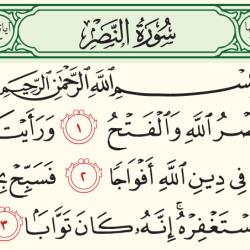 سُورَةُ النَّصْرِ
بِسْمِ اللَّهِ الرَّحْمَٰنِ الرَّحِيمِ
اللَّهِ وَالْفَتْحُ ١ وَرَأَيْتَ
فِي دِينِ اللَّهِ أَفْوَاجًا ٢ فَسَبِّحْ
إِنَّهُ كَانَ تَوَّابًا ٣